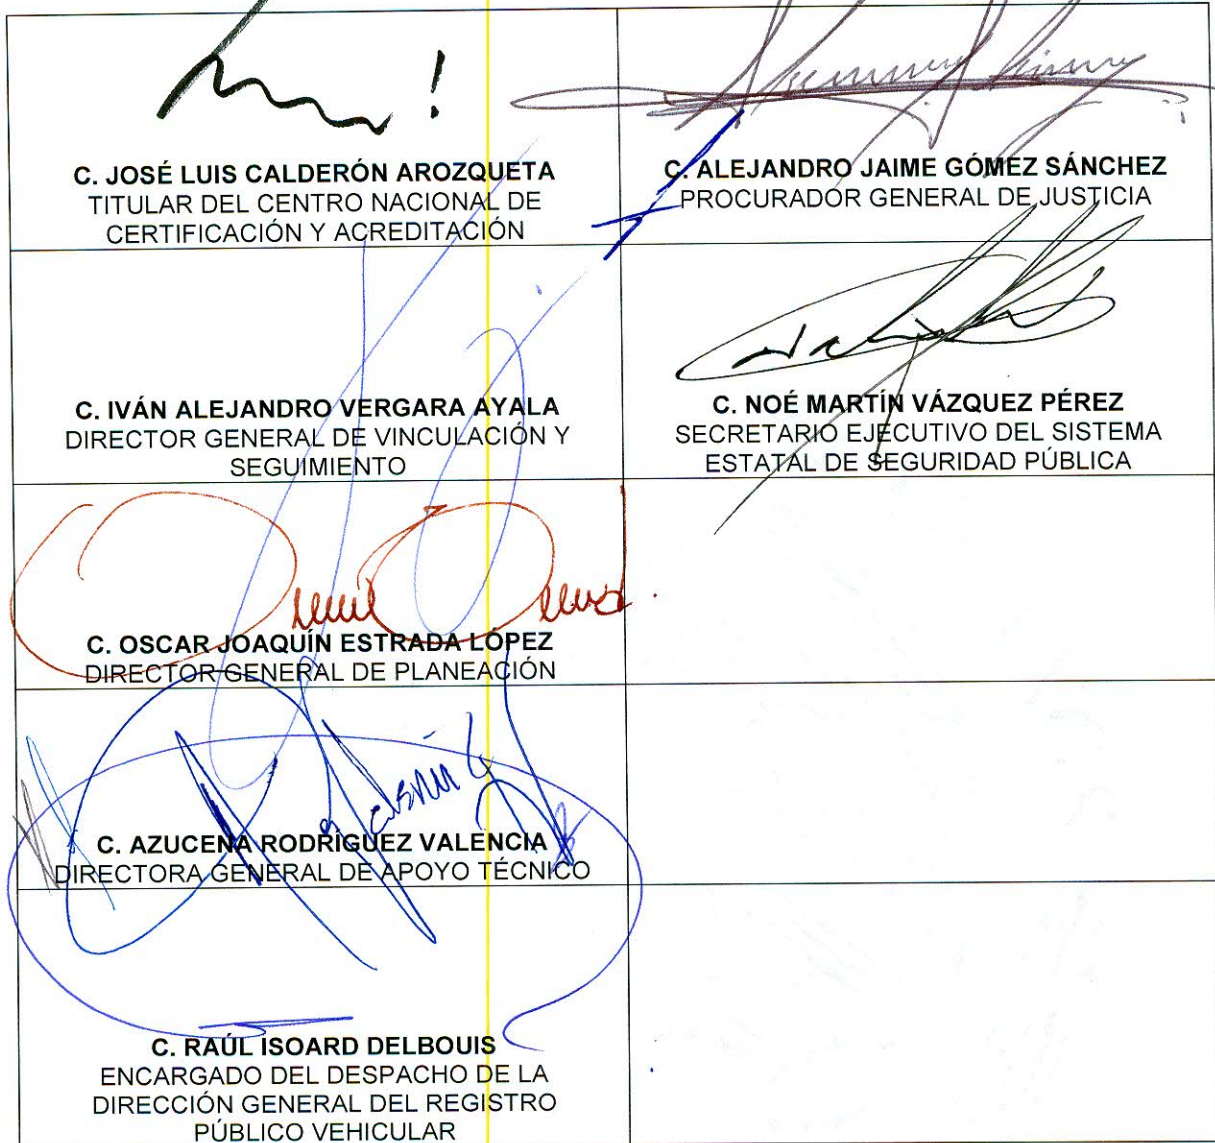 C. JOSÉ LUIS CALDERÓN AROZQUETA
TITULAR DEL CENTRO NACIONAL DE
CERTIFICACIÓN Y ACREDITACIÓN
C. ALEJANDRO JAIME GÓMEZ SÁNCHEZ
PROCURADOR GENERAL DE JUSTICIA
C. IVÁN ALEJANDRO VERGARA AYALA
DIRECTOR GENERAL DE VINCULACIÓN Y
SEGUIMIENTO
C. NOÉ MARTÍN VÁZQUEZ PÉREZ
SECRETARIO EJECUTIVO DEL SISTEMA
ESTATAL DE SEGURIDAD PÚBLICA
C. OSCAR JOAQUÍN ESTRADA LÓPEZ
DIRECTOR GENERAL DE PLANEACIÓN
C. AZUCENA RODRÍGUEZ VALENCIA
DIRECTORA GENERAL DE APOYO TÉCNICO
C. RAÚL ISOARD DELBOUIS
ENCARGADO DEL DESPACHO DE LA
DIRECCIÓN GENERAL DEL REGISTRO
PÚBLICO VEHICULAR